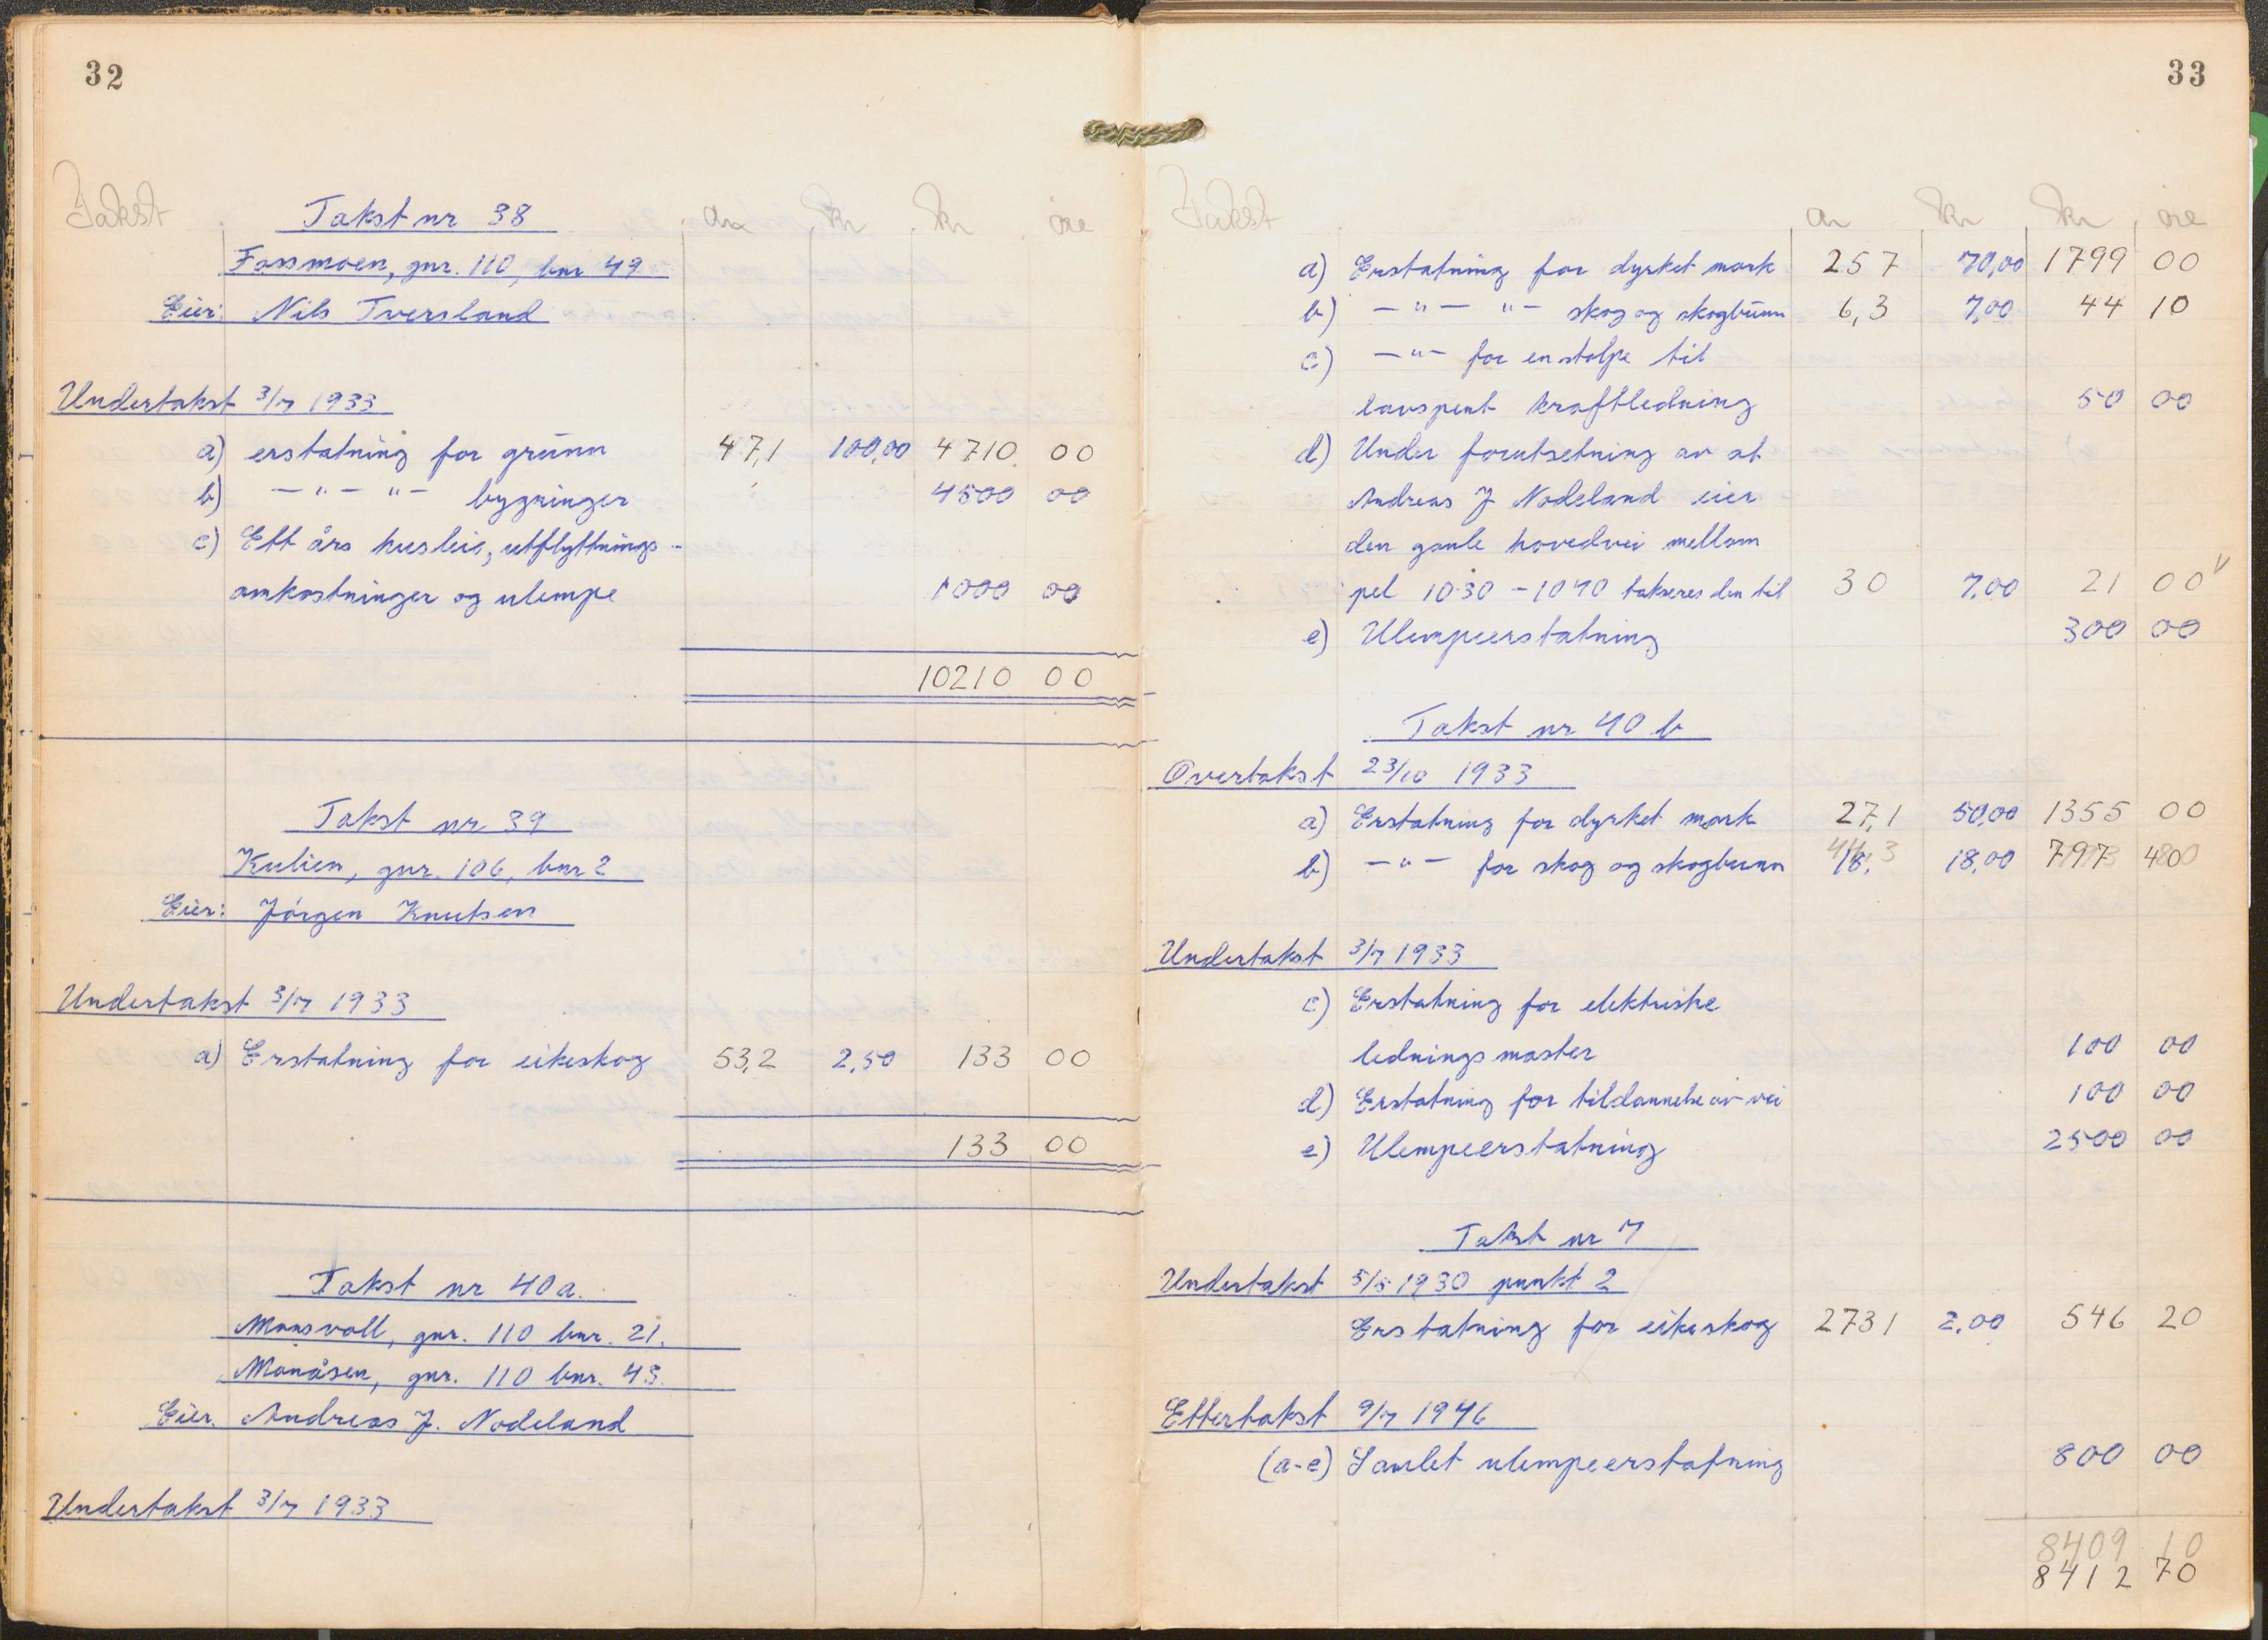 32
Takst ar kr kr øre
Takst nr 38
Fossmoen, gnr. 110, bnr 49
Eier: Nils Tversland
Undertakst 3/7 1933
a) erstatning for grunn 47,1 100,00 4710 00
b) —"— "— bygninger 4500 00
c) Ett års husleie, utflyttnings-
omkostninger og ulempe 1000 00
10210 00
Takst nr 39
Kulien, gnr. 106, bnr 2
Eier: Jörgen Knutsen
Undertakst 3/7 1933
a) Erstatning for eikeskog 53,2 2,50 133 00
133 00
Takst nr 40a.
Monsvoll, gnr. 110 bnr. 21.
Monåsen, gnr. 110 bnr. 43.
Eier. Andreas J. Nodeland
Undertakst 3/7 1933
33
Takst ar kr kr øre
a) Erstatning for dyrket mark 257 70,00 1799 00
b) —"— "— skog og skogbunn 6,3 7,00 44 10
c) —"— for en stolpe til
lavspent kraftledning 50 00
d) Under forutsetning av at
Andreas J Nodeland eier
den gamle hovedvei mellom
pel 1030 - 1040 takseres den til 30 7,00 21 00
e) Ulempeerstatning 300 00
Takst nr 40 b
Overtakst 23/10 1933
a) Erstatning for dyrket mark 27,1 50,00 1355 00
b) —"— for skog og skogbunn 18,00 797 40
Undertakst 3/7 1933
c) Erstatning for elektriske
ledningsmaster 100 00
d) Erstatning for tildannelse av vei 100 00
e) Ulempeerstatning 2500 00
Takst nr 7
Undertakst 5/5 1930 punkt 2
Erstatning for eikeskog 2731 2.00 546 20
Ettertakst 9/7 1946
(a-e) Samlet ulempeerstatning 800 00
8409 10
8412 70